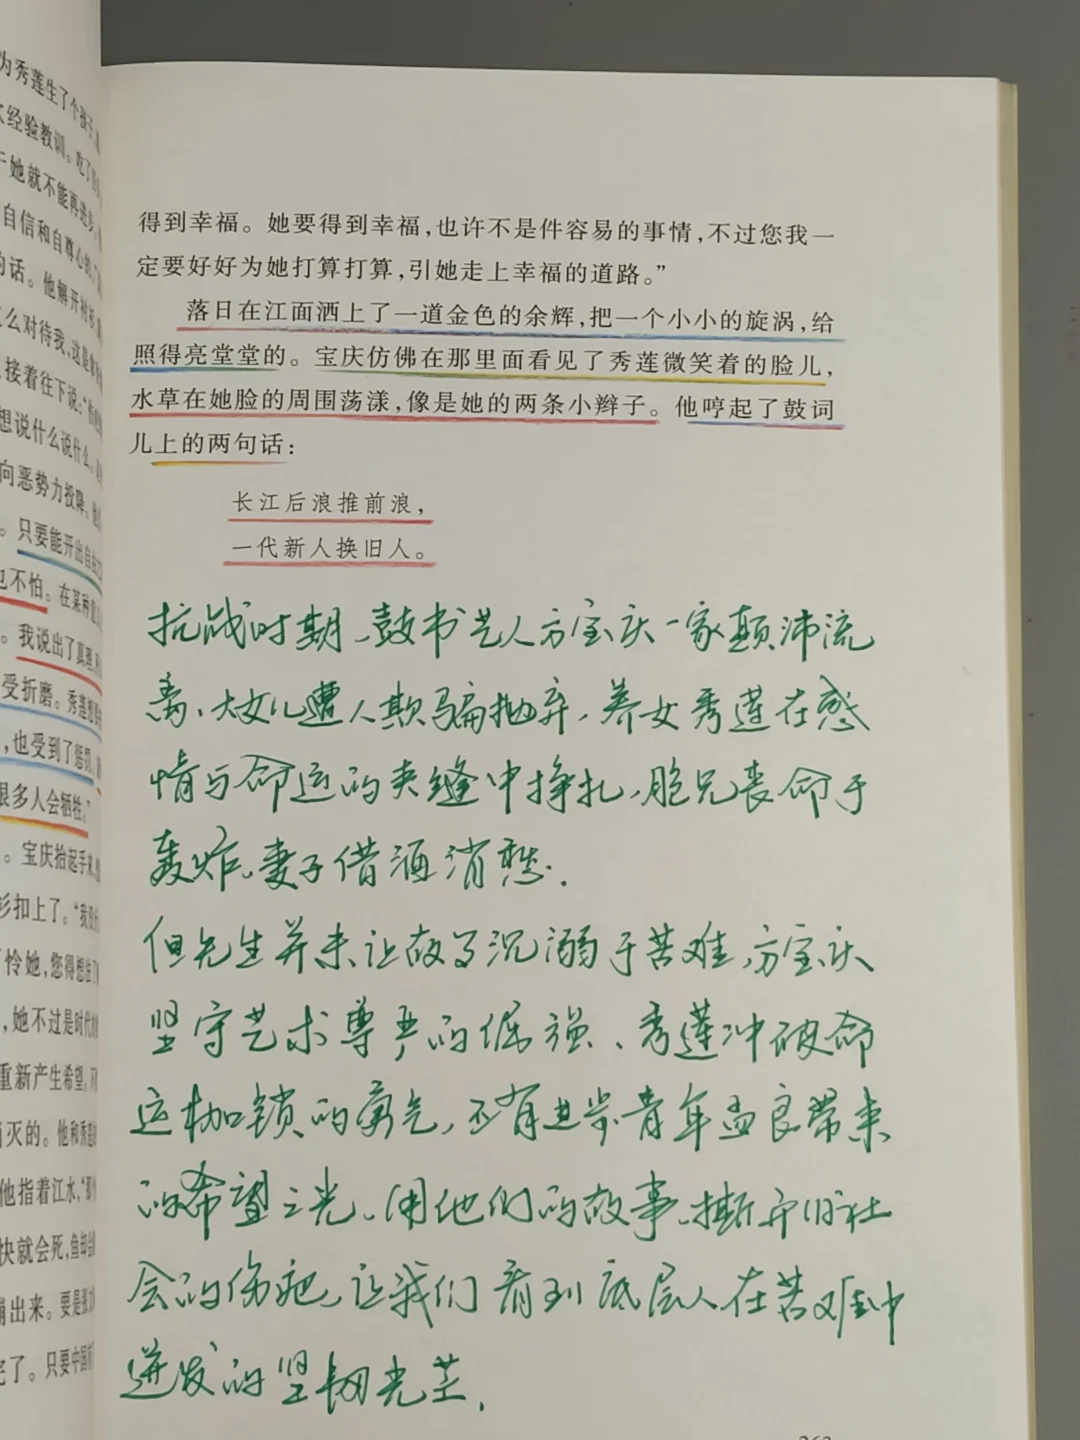 为秀莲生了个孩子
经验教训。吃了
她就不能再进步
自信和自尊心的
的话。他解开衬衫
么对待我,这是
接着往下说:“
想说什么说什么。
向恶势力投降。
。只要能开出自由
也不怕。在某种
。我说出了真理
受折磨。秀莲想
,也受到了惩罚。
很多人会牺牲。”
。宝庆抬起手来
衫扣上了。“我
怜她,您得想
,她不过是时代的
重新产生希望。
消灭的。他和秀莲
他指着江水,“那
快就会死,鱼却会
崩出来。要是
完了。只要中国
得到幸福。她要得到幸福,也许不是件容易的事情,不过您我一
定要好好为她打算打算,引她走上幸福的道路。”
落日在江面洒上了一道金色的余辉,把一个小小的旋涡,给
照得亮堂堂的。宝庆仿佛在那里面看见了秀莲微笑着的脸儿,
水草在她脸的周围荡漾,像是她的两条小辫子。他哼起了鼓词
儿上的两句话:
长江后浪推前浪,
一代新人换旧人。
抗战时期、鼓书艺人方宝庆一家颠沛流
离、大女儿遭人欺骗抛弃,养女秀莲在感
情与命运的夹缝中挣扎,胞兄丧命于
轰炸、妻子借酒消愁.
但先生并未让故事沉溺于苦难,方宝庆
坚守艺术尊严的倔强、秀莲冲破命
运枷锁的勇气,还有进步青年孟良带来
的希望之光、用他们的故事、撕开旧社
会的伤疤,让我们看到底层人在苦难中
迸发的坚韧光芒.